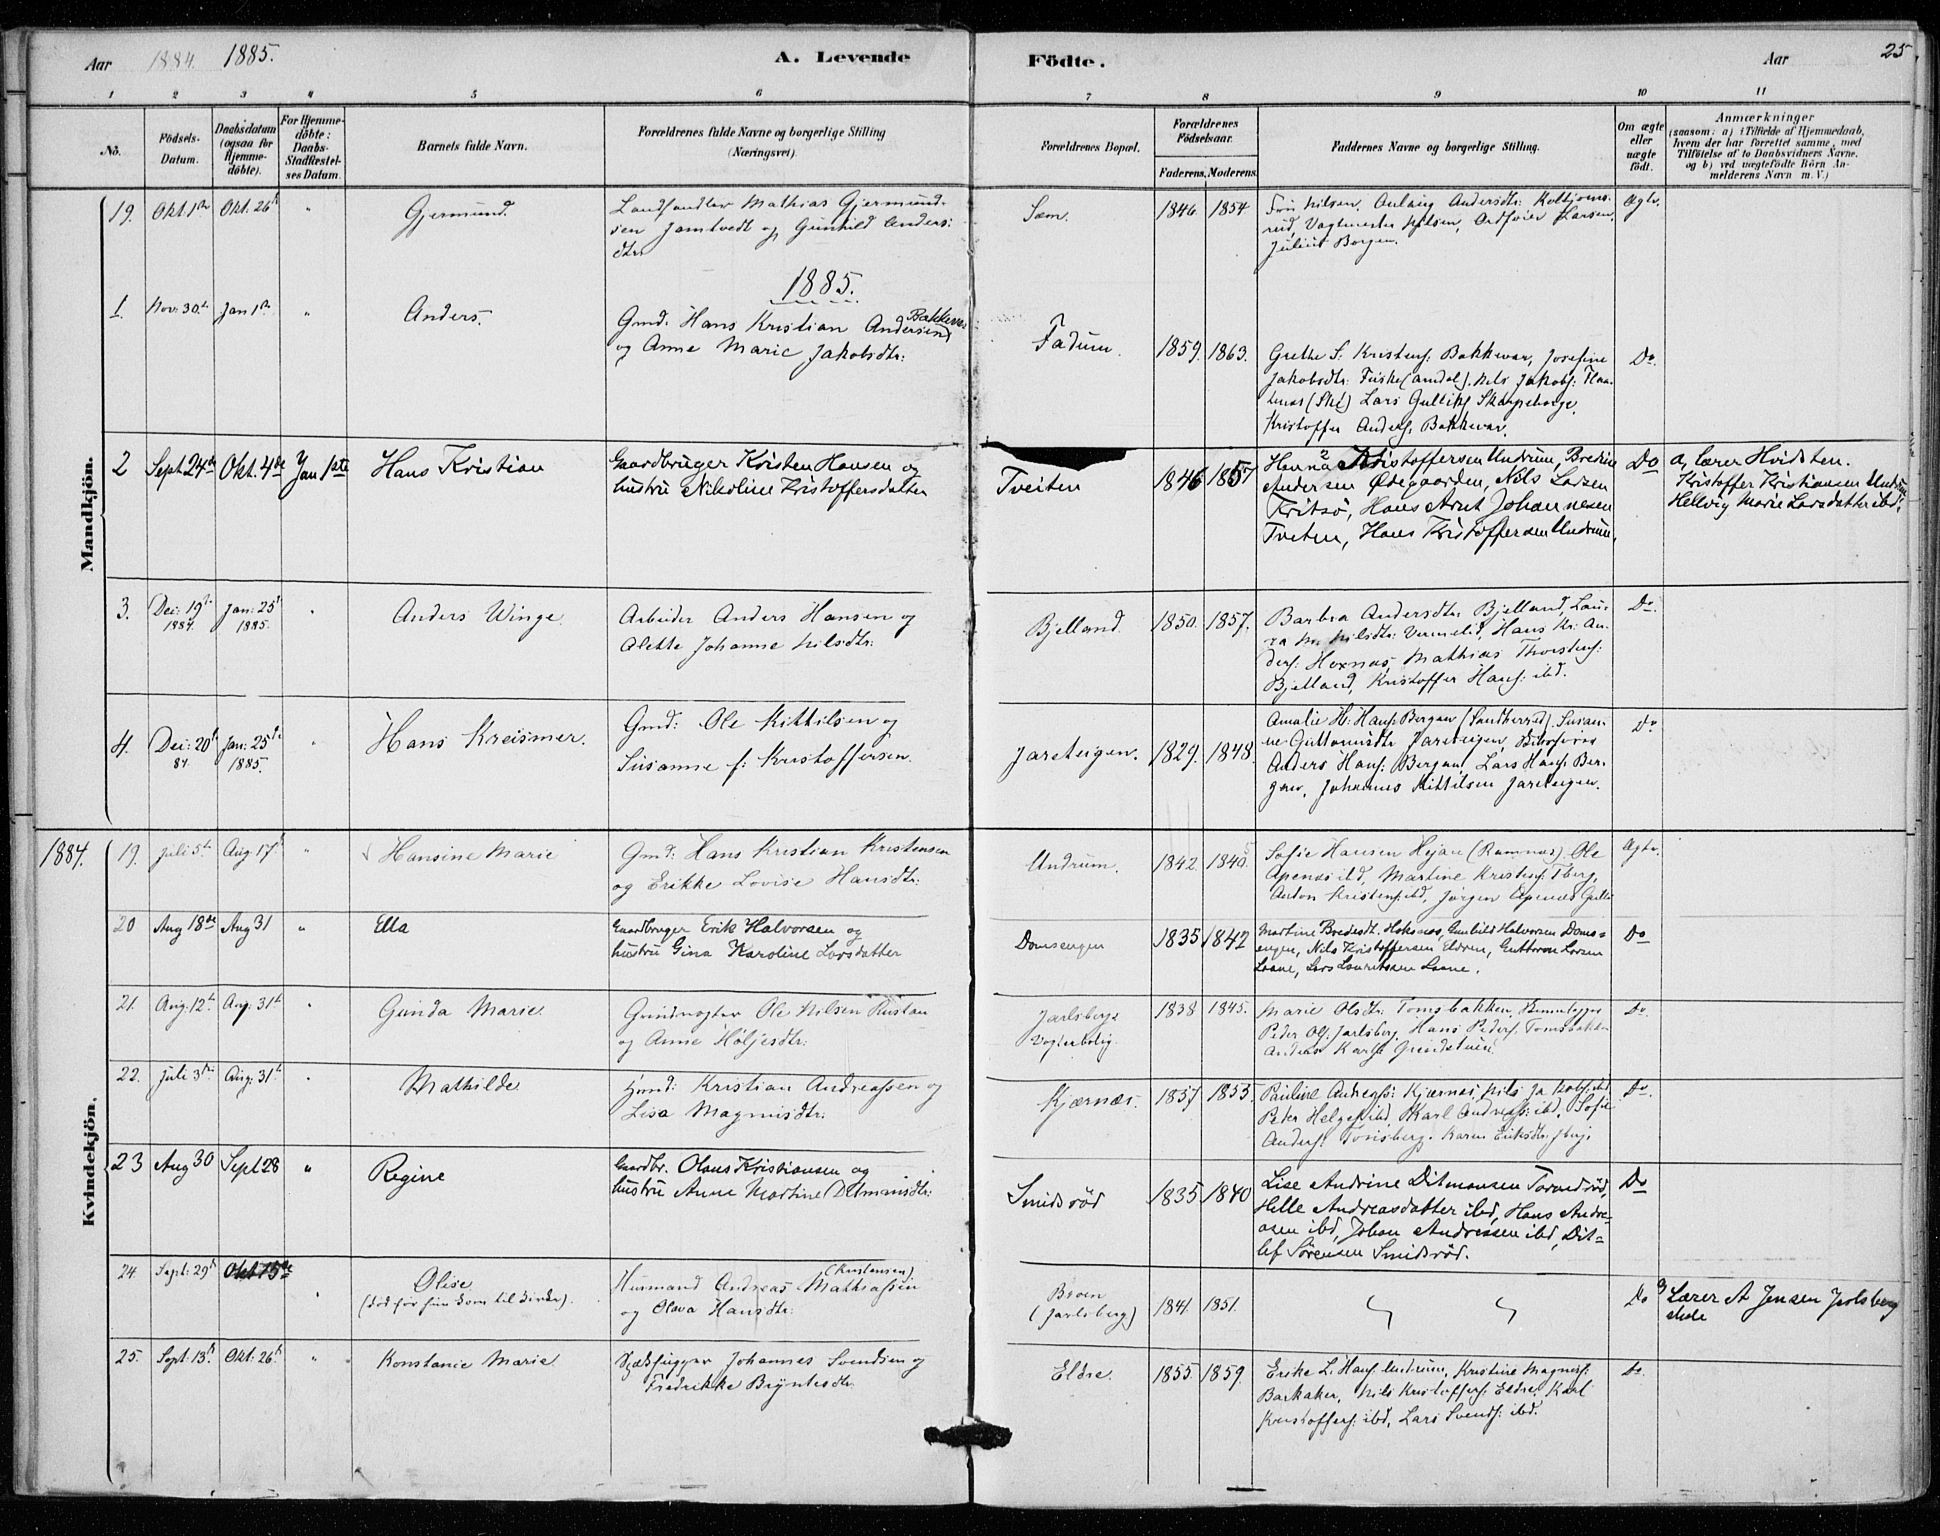 Aar 1884. 1885. A. Levende Födte. Aar 25
1 2 3 4 5 6 7 8 9 10 11
No. Födsels-Datum. Daabsdatum (ogsaa for Hjemmedöbte). For Hjemmedöbte: Daabs-Stadfæstelses Datum. Barnets fulde Navn. Forældrenes fulde Navne og borgerlige Stilling (Næringsvei). Forældrenes Bopæl. Forældrenes Födselsaar. Faderens. Moderens. Faddernes Navne og borgerlige Stilling. Om ægte eller uægte födt. Anmærkninger (saasom: a) i Tilfælde af Hjemmedaab, hvem der har forrettet samme, med Tilföielse af to Daabsvidners Navne, og b) ved uægtefödte Börn Anmelderens Navn m. V.)
Mandkjön.
19. Okt. 1ste Okt. 26de " Gjermund. Landhandler Mathias Gjermund-
sen Jamtvedt og Gunhild Anders-
dtr.
Sem. 1846 1854 Fru Nilsen, Anlaug Andersdtr. Koltjøns-
rud, Vagtmester Nilsen, Larsen,
Julius Borgen. Ægte.
1885.
1. Nov. 30te Jan 1ste " Anders. Gmd: Hans Kristian Andersen Bakkevar
og Anne Marie Jakobsdtr:
Fadum. 1859. 1863. Grethe S. Kristens: Bakkevar, Josefine
Jakobsdtr: Fuske (Andeb). Nils Jakobs:
(Ske) Lars Gulliks: Skarpeborge,
Kristoffer Anders: Bakkevar. Do.
2 Sept 24de Okt. 4de Jan 1ste Hans Kristian Gaardbruger Kristen Hansen og
hustru Nikoline Kristoffersdatter
Tveiten 1846 1857 Hanna Kristoffersen Undrum, Bredine
Andersen Ødegaarden, Nils Larsen
Fritsø, Hans Arnt Johannesen
Tveten, Hans Kristoffersen Undrum. Do a, Lærer Hvidsten.
Kristoffer Kristiansen Undrum
Hellvig Marie Larsdatter ibd.
3. Dec: 19de 1884. Jan: 25de 1885. " Anders Winge Arbeider Anders Hansen og
Alette Johanne Nilsdtr:
Bjelland. 1850. 1857. Barbra Andersdtr. Bjelland, Lau-
ra M. Nilsdtr: Vermelid, Hans Kr: An-
ders: Hexnæs, Mathias Thorstens:
Bjelland, Kristoffer Hans: ibd. Do.
4. Dec: 20de 84. Jan: 25de 1885. " Hans Kreismer. Gmd: Ole Kittilsen og
Susanne f: Kristoffersen.
Jareteigen. 1829. 1848. Amalie H: Hans: Bergan (Sandherred). Susan-
ne Guttormsdtr Jareteigen,
Anders Hans: Bergan Lars Hans: Ber-
gan, Johannes Kittilsen Jareteigen. Do
Kvindekjön.
1884. 19. Juli 5te Aug 17de " Hansine Marie Gmd: Hans Kristian Kristensen
og Erikke Lovise Hansdtr:
Undrum. 1842 1840. Sofie Hansen Hejan (Ramnæs). Ole
Apenæs ibd, Martine Kristens: Tberg,
Anton Kristens: ibd, Jørgen Apenæs Gulli Ægte.
20 Aug 18de Aug 31 " Ella Gaardbruger Erik Halvorsen og
hustru Gina Karoline Larsdatter
Domsengen 1835 1842 Martine Bredesdt. Heksnæs, Gunhild Halvorsen Doms-
engen, Nils Kristoffersen Eldren, Guttorm Larsen
Laane, Lars Lauritssen Laane. Do
21. Aug: 12te Aug. 31te " Gunda Marie Grindvogter Ole Nilsen Rustan
og Anne Holjesdtr:
Jarlsbergs
Vogterbolig. 1838 1845. Marie Olsdtr: Tomsbakken,
Peder Ols: Jarlsberg, Hans Peders: Tomsbakken
Andreas Karls: Grindstuen. Do.
22. Juli 3die Aug. 31te " Mathilde Gmd: Kristian Andreassen og
Lisa Magnusdtr:
Kjærnæs. 1857 1853. Pauline Andreass: Kjærnæs, Nils Jakobs: ibd
Peder Helges: ibd, Karl Andreass: ibd, Sofie
Anders: Tønsberg. Karen Eriksdtr: Tberg. Do.
23 Aug 30 Sept 28 " Regine Gaardbr. Olaus Kristiansen og
hustru Anne Martine Ditmansdtr:
Smidsrød 1835 1840 Lise Andrine Ditmansen Torvedrød,
Helle Andreasdatter ibd, Hans Andre-
asen ibd, Johan Andreasen ibd, Dit-
lef Sørensen Smidsrød. Do
24. Sept: 29de Okt 15de " Olise
(død før hun kom til Kirke). Husmand Andreas Mathiassen (Kristensen)
og Olava Hansdtr:
Broen
(Jarlsberg) 1841. 1851. " " Do a, Lærer A Jensen Jarlsberg
skole
25. Sept: 13de Okt. 26de " Konstanse Marie Johannes Svendsen og
Fredrikke Bryntesdtr.
Eldre. 1855. 1859. Erike L. Hans: Undrum, Kristine Magnus:
Barkaker, Nils Kristoffers: Eldre, Karl
Kristoffers: ibd, Lars Svends: ibd. Do.